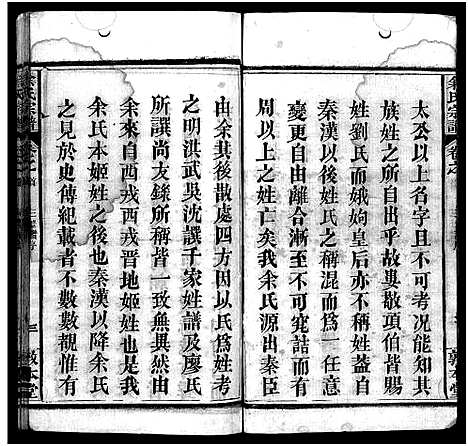 太公以上名字且不可考況能知其
族姓之所自出乎故婁敬項伯皆賜
姓劉氏而娥姁皇后亦不稱姓蓋自
秦漢以後姓氏之稱混而為一年代
變更自由離合漸至不可究詰而有
周以上之姓亡矣我余氏源出秦臣
由余其後散處四方因以氏為姓考
之明洪武吳沈譔千家姓譜及廖氏
所譔尚友錄所稱皆一致無異然由
余來自西戎西戎晉地姬姓也是我
余氏本姬姓之後也秦漢以降余氏
之見於史傳紀載者不大數數覯惟有
余氏宗譜
卷之首
敦本堂